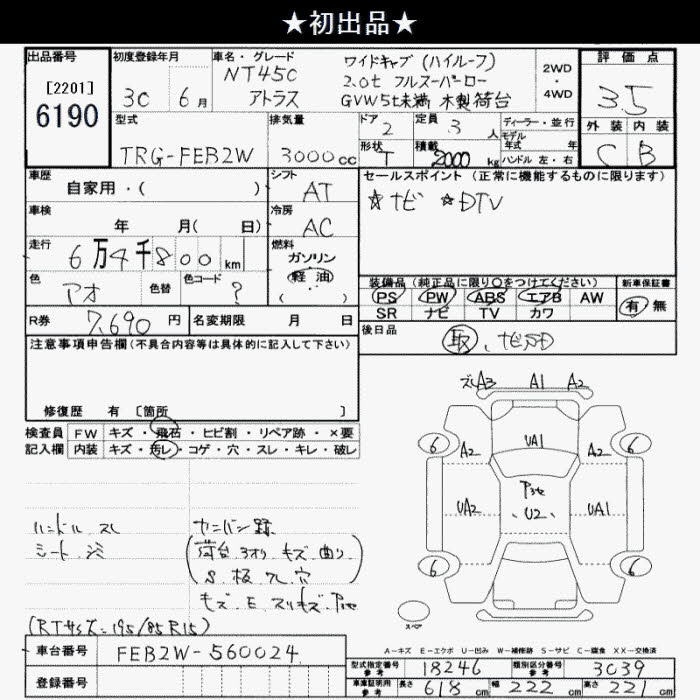 ★初出品★
出品番号
[2201]
6190
初度登録年月
30 6月
車名・グレード
NT450
アトラス
ワイドキャブ (ハイルーフ)
2.0t フルスーパーロー
GVW5t未満 木製荷台
2WD
・
4WD
評価点
3.5
外装 内装
C B
型式
TRG-FEB2W
排気量
3000cc
ドア
2
定員
3 人
形状
T
積載
2000 kg
ディーラー・並行
モデル
年式 年
ハンドル 左・右
車歴
自家用・( )
シフト
AT
車検
年 月( 日)
冷房
AC
走行
6万4千800 km
燃料
ガソリン
軽油
( ・ )
色
アオ
色替
色コード
?
R券
7,690 円
名変期限 月 日
セールスポイント (正常に機能するものに限ります)
☆ナビ ☆DTV
装備品 (純正品に限り○をつけてください)
PS PW ABS エアB AW
SR ナビ TV カワ
新車保証書
有 無
後日品
取、ナビSD
注意事項申告欄(不具合内容等は具体的に記入して下さい)
修復歴 有 〔箇所 〕
検査員 FW キズ・飛石・ヒビ割・リペア跡・×要
記入欄 内装 キズ・汚レ・コゲ・穴・スレ・キレ・破レ
ハンドル スレ
シート シミ
カンバン跡
荷台 3オリ キズ 曲り
S 板 ワレ 穴
キズ E スリキズ
(RTサイズ=195/85R15)
A3 A1 A2
6 A2 UA1 A2 6
UA2 U2 UA1
6 6
スペア
A−キズ E−エクボ U−凹み W−補修跡 S−サビ C−腐食 XX−交換済
車台番号 FEB2W-560024
登録番号
型式指定番号
参考
18246
類別区分番号
参考
3039
車庫証明用
参考
長さ 618 cm 幅 222 cm 高さ 221 cm